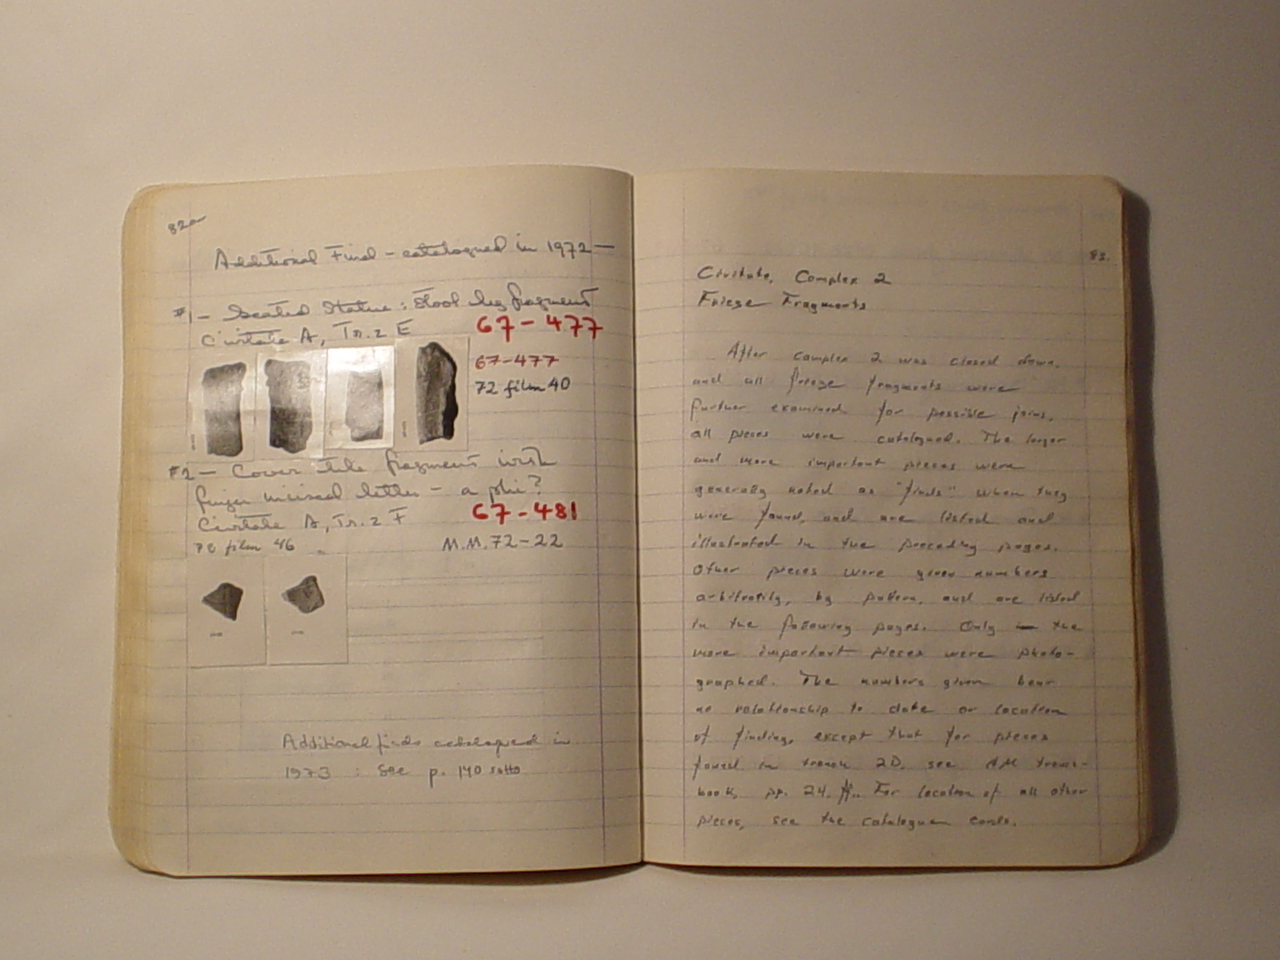 82a
Additional Find - catalogued in 1972 —
#1 - Seated Statue: Stool leg fragment
Civitate A, Tr. 2 E
67-477
67-477
72 film 40
#2 - Cover tile fragment with
finger incised letter - a phi?
Civitate A, Tr. 2 F
67-481
72 film 46
M.M. 72-22
Additional finds catalogued in
1973 : See p. 140 sotto
83.
Civitate, Complex 2
Frieze Fragments
After complex 2 was closed down,
and all frieze fragments were
further examined for possible joins,
all pieces were catalogued. The larger
and more important pieces were
generally noted as "finds" when they
were found, and are listed and
illustrated in the preceding pages.
Other pieces were given numbers
arbitrarily, by pattern, and are listed
in the following pages. Only the
more important pieces were photo-
graphed. The numbers given bear
no relationship to date or location
of finding, except that for pieces
found in trench 2D, see AM trench-
book, pp. 24 ff. For location of all other
pieces, see the catalogue cards.